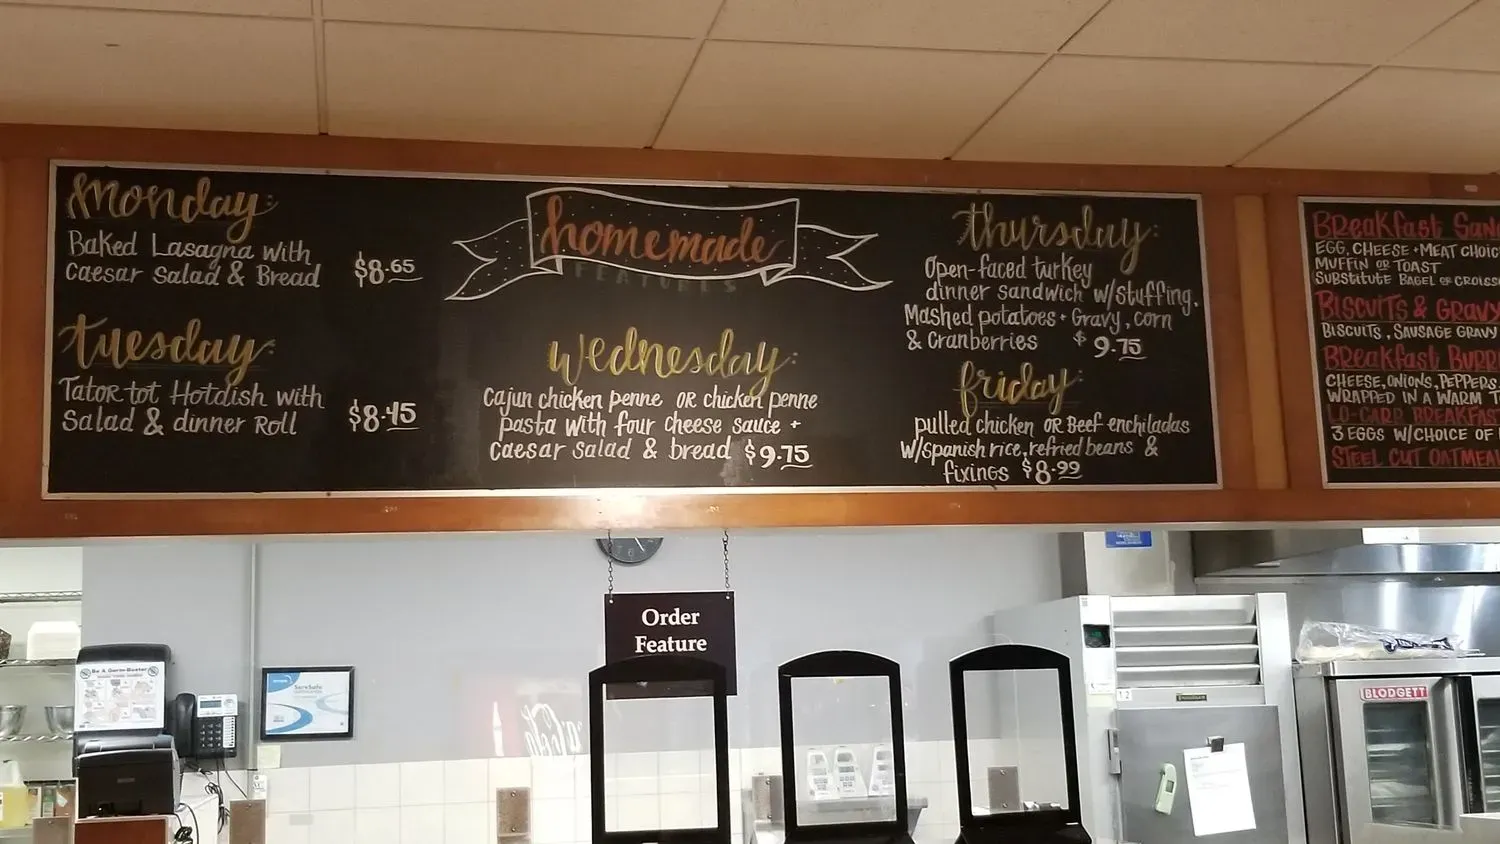 Monday:
Baked Lasagna with
Caesar Salad & Bread
$8.65
Tuesday:
Tator tot Hotdish with
Salad & dinner Roll
$8.45
homemade
FEATURES
Wednesday:
Cajun chicken penne OR chicken penne
pasta with four cheese sauce +
Caesar salad & bread $9.75
Thursday:
Open-faced turkey
dinner sandwich w/stuffing,
Mashed potatoes + Gravy, corn
& Cranberries $9.75
friday:
pulled chicken OR Beef enchiladas
w/spanish rice, refried beans &
fixings $8.99
Breakfast San
EGG, CHEESE + MEAT CHOIC
MUFFIN OR TOAST
SUBSTITUTE BAGEL OR CROISS
BISCUITS & GRAVY
BISCUITS, SAUSAGE GRAVY
Breakfast Burr
CHEESE, ONIONS, PEPPERS,
WRAPPED IN A WARM T
LO-CARB BREAKFAST
3 EGGS W/CHOICE OF
STEEL CUT OATMEAL
Order
Feature
Be A Germ-Buster
ServSafe
12
BLODGETT